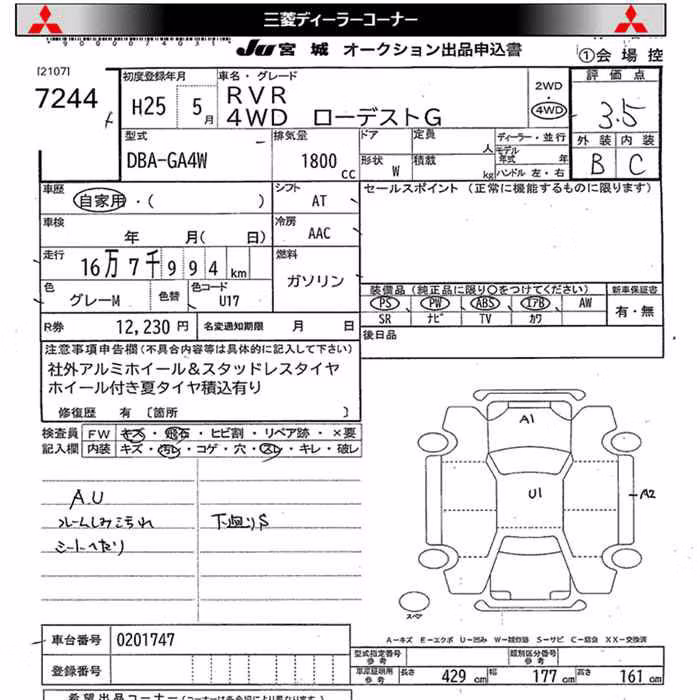 三菱ディーラーコーナー
JU 宮城 オークション出品申込書
①会場控
[2107]
7244
初度登録年月
H25 5月
車名・グレード
RVR
4WD ローデストG
2WD
・
4WD
評価点
3.5
外装 内装
B C
型式
DBA-GA4W
排気量
1800 cc
ドア
定員
人
形状
W
積載
kg
ディーラー・並行
モデル年式 年
ハンドル 左・右
車歴
自家用・( )
シフト
AT
セールスポイント (正常に機能するものに限ります)
車検
年 月( 日)
冷房
AAC
走行
16万7千994km
燃料
ガソリン
色
グレーM
色替
色コード
U17
装備品 (純正品に限り〇をつけてください)
PS PW ABS エアB AW
SR ナビ TV カワ
新車保証書
有・無
R券 12,230円
名変通知期限 月 日
後日品
注意事項申告欄(不具合内容等は具体的に記入して下さい)
社外アルミホイール&スタッドレスタイヤ
ホイール付き夏タイヤ積込有り
修復歴 有 〔箇所 〕
検査員 FW キズ・飛石・ヒビ割・リペア跡・×要
記入欄 内装 キズ・汚レ・コゲ・穴・スレ・キレ・破レ
AU
下廻りS
シートへたり
A1
U1
A2
スペア
A-キズ E-エクボ U-凹み S-サビ C-腐食 XX-交換済
車台番号 0201747
登録番号
型式指定番号
参考
類別区分番号
参考
車庫証明用
参考
長さ 429cm 幅 177cm 高さ 161cm
希望出品コーナー